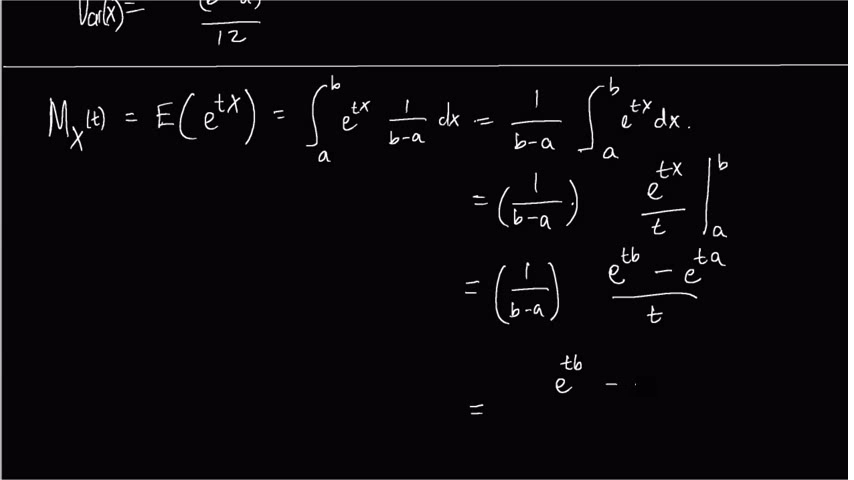 Var(x) = (b-a) / 12
M_X(t) = E(e^{tX}) = ∫_a^b e^{tx} 1/(b-a) dx = 1/(b-a) ∫_a^b e^{tx} dx.
= (1/(b-a)) e^{tx}/t |_a^b
= (1/(b-a)) (e^{tb} - e^{ta})/t
= e^{tb} -